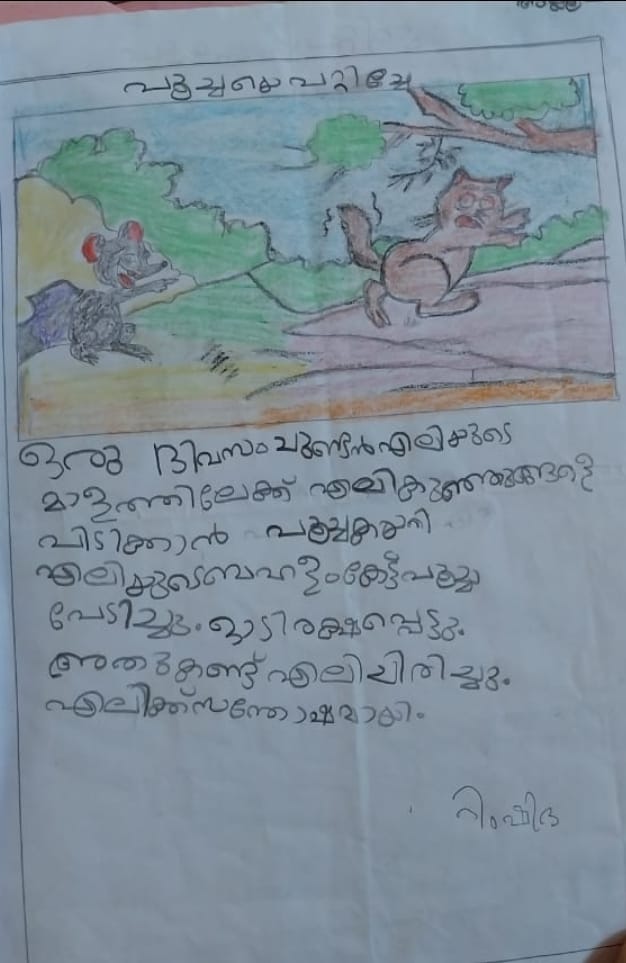 പൂച്ചയെ പറ്റിച്ചേ
ഒരു ദിവസം ചുണ്ടൻ എലിയുടെ
മാളത്തിലേക്ക് എലികുഞ്ഞുങ്ങളെ
പിടിക്കാൻ പൂച്ചകയറി
എലിയുടെ ബഹളം കേട്ട് പൂച്ച
പേടിച്ചു. ഓടി രക്ഷപ്പെട്ടു.
അതുകണ്ട് എലി ചിരിച്ചു.
എലിക്ക് സന്തോഷമായി.
റിംഷിദ